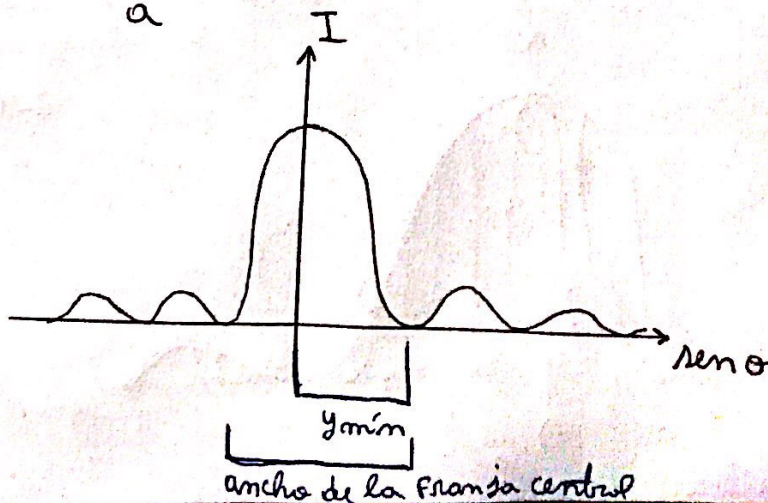 a
I
sen θ
ymín
ancho de la franja central